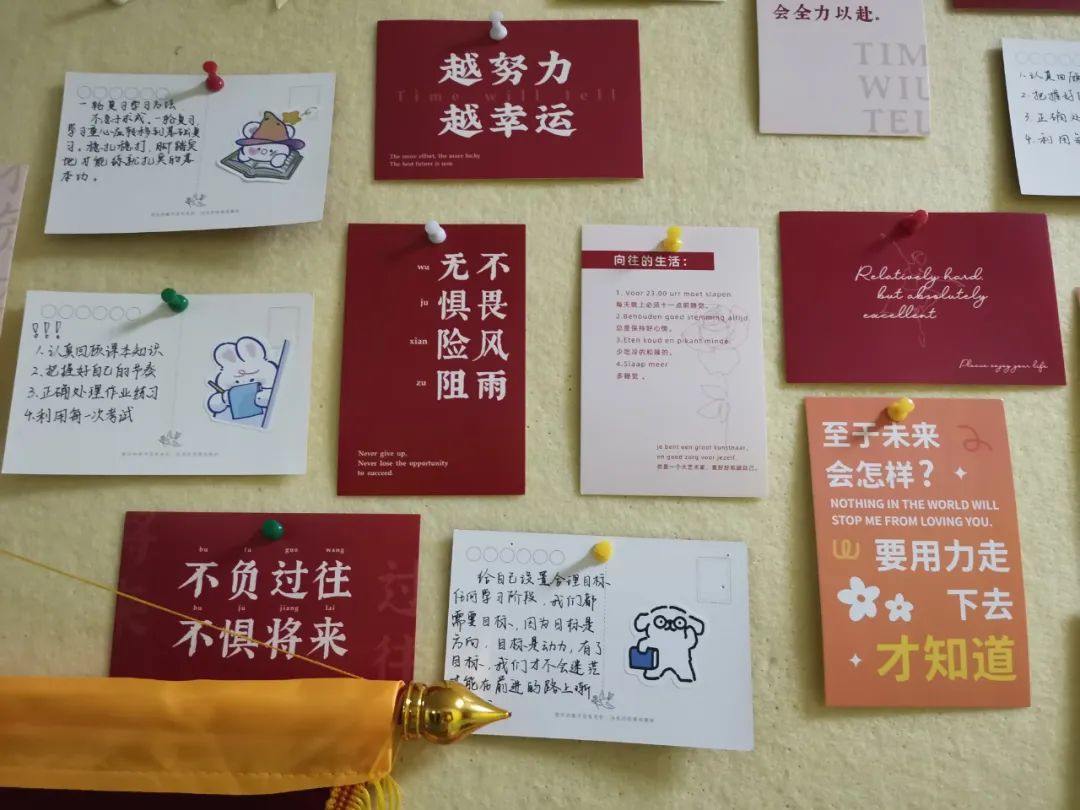 会全力以赴。
TIM
WIL
TEL
越努力
Time will tell
越幸运
The more effort, the more lucky
The best future is now
一轮复习学习方法
不喜寸求戎、一轮复习
学习重心应转移到基础复
习。稳扎稳打、脚踏实
地才能练就扎实的基
本功。
1.认真回
2.把握好
3.正确处
4.利用每
不畏风雨
无惧险阻
wu
ju
xian
zu
Never give up,
Never lose the opportunity
to succeed.
向往的生活：
1. Voor 23.00 urr moet slapen.
每天晚上必须十一点前睡觉。
2.Behouden goed stemming altijd.
总是保持好心情。
3.Eten koud en pikant minde.
少吃冷的和辣的。
4.Slaap meer
多睡觉 。
je bent een groot kunstnaar,
en goed zorg voor jezelf.
你是一个大艺术家，要好好照顾自己。
Relatively hard,
but absolutely
excellent
Please enjoy your life
!!!
1.认真回顾课本知识
2.把握好自己的节奏
3.正确处理作业练习
4.利用每一次考试
至于未来
会怎样？
NOTHING IN THE WORLD WILL
STOP ME FROM LOVING YOU.
要用力走
下去
才知道
bu fu guo wang
不负过往
bu ju jiang lai
不惧将来
过往
给自己设置合理目标
任何学习阶段，我们都
需要目标、因为目标是
方向，目标是动力，有了
目标、我们才不会迷茫
才能在前进的路上渐